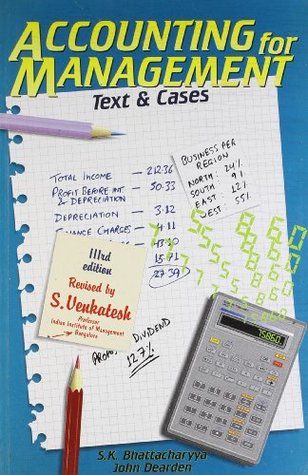 ACCOUNTING for
MANAGEMENT
Text & Cases
TOTAL INCOME — 212.36
PROFIT BEFORE INT
& DEPRECIATION — 50.33
DEPRECIATION — 3.12
FINANCE CHARGES 4.11
15.71
27.39
BUSINESS PER
REGION
NORTH: 24%
SOUTH 9%
EAST 12%
WEST 55%
IIIrd
edition
Revised by
S.Venkatesh
Professor
Indian Institute of Management
Bangalore
DIVIDEND
12.7%
75860
S.K. Bhattacharyya
John Dearden